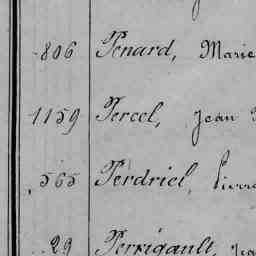 806 Penard, Marie
1159 Percel, Jean
565 Perdriel, Pierre
29 Perrigault, Jea